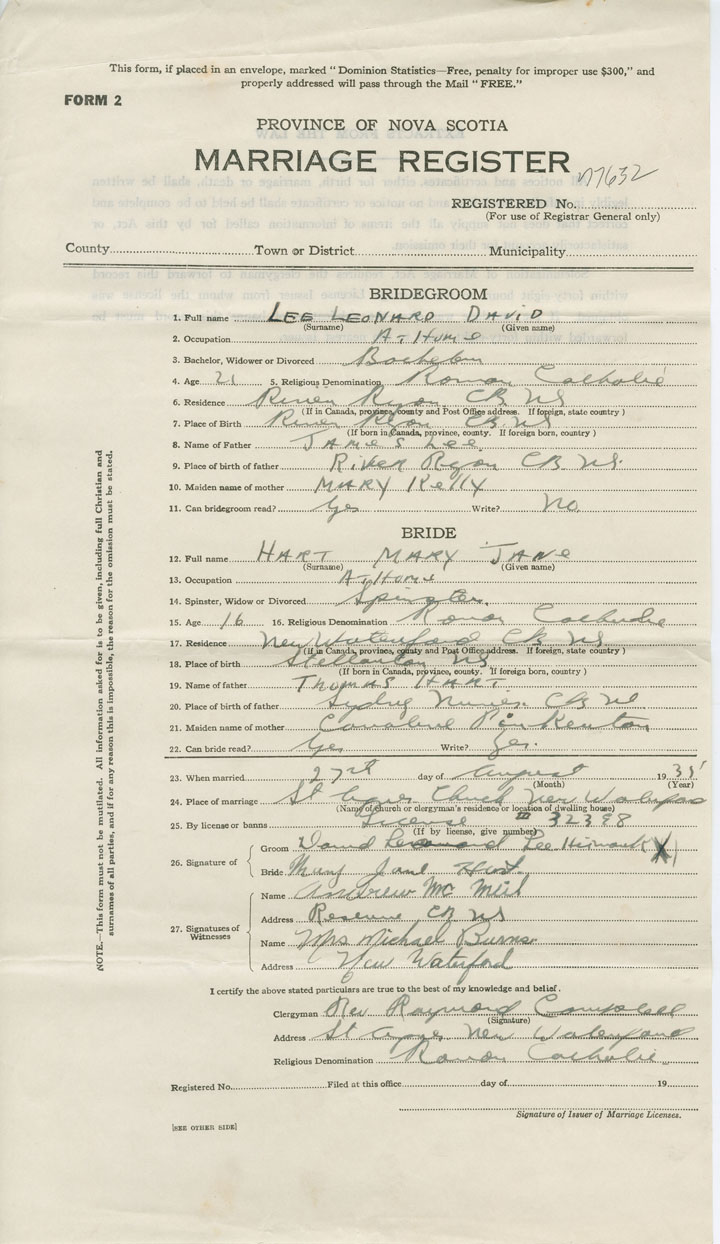 This form, if placed in an envelope, marked "Dominion Statistics—Free, penalty for improper use $300," and
properly addressed will pass through the Mail "FREE."
FORM 2
PROVINCE OF NOVA SCOTIA
MARRIAGE REGISTER
7632
REGISTERED No.
(For use of Registrar General only)
County Town or District Municipality
BRIDEGROOM
1. Full name LEE LEONARD DAVID
(Surname) (Given name)
2. Occupation At Home
3. Bachelor, Widower or Divorced Bachelor
4. Age 21 5. Religious Denomination Roman Catholic
6. Residence River Ryan CB NS
(If in Canada, province, county and Post Office address. If foreign, state country)
7. Place of Birth River Ryan CB NS
(If born in Canada, province, county. If foreign born, country)
8. Name of Father JAMES LEE
9. Place of birth of father River Ryan CB NS.
10. Maiden name of mother MARY Kelly
11. Can bridegroom read? Yes Write? No
BRIDE
12. Full name HART MARY JANE
(Surname) (Given name)
13. Occupation At Home
14. Spinster, Widow or Divorced Spinster
15. Age 16 16. Religious Denomination Roman Catholic
17. Residence New Waterford CB NS
(If in Canada, province, county and Post Office address. If foreign, state country)
18. Place of birth Stellarton NS
(If born in Canada, province, county. If foreign born, country)
19. Name of father THOMAS HART
20. Place of birth of father Sydney Mines CB NS
21. Maiden name of mother Caroline Pinkerton
22. Can bride read? Yes Write? Yes.
23. When married 27th day of August 1935
(Month) (Year)
24. Place of marriage St Agnes Church New Waterford
(Name of church or clergyman's residence or location of dwelling house)
25. By license or banns License 32398
(If by license, give number)
26. Signature of
Groom David Leonard Lee His mark X
Bride Mary Jane Hart
27. Signatures of Witnesses
Name Andrew Mc Neil
Address Reserve CB NS
Name Mrs Michael Burns
Address New Waterford
I certify the above stated particulars are true to the best of my knowledge and belief.
Clergyman Rev Raymond Campbell
(Signature)
Address St Agnes New Waterford
Religious Denomination Roman Catholic
Registered No. Filed at this office day of 19
Signature of Issuer of Marriage Licenses.
[SEE OTHER SIDE]
NOTE.—This form must not be mutilated. All information asked for is to be given, including full Christian and
surnames of all parties, and if for any reason this is impossible, the reason for the omission must be stated.